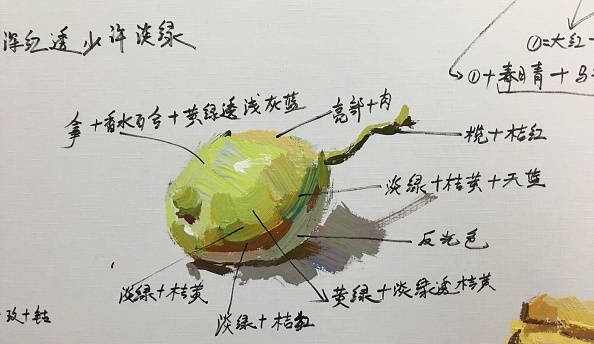 深红透少许淡绿
①=大红
①+春日青+马
拿+香水百合+黄绿透浅灰蓝
亮部+肉
榄+桔红
淡绿+桔黄+天蓝
反光色
淡绿+桔黄
黄绿+淡绿透桔黄
淡绿+桔红
玫+钴